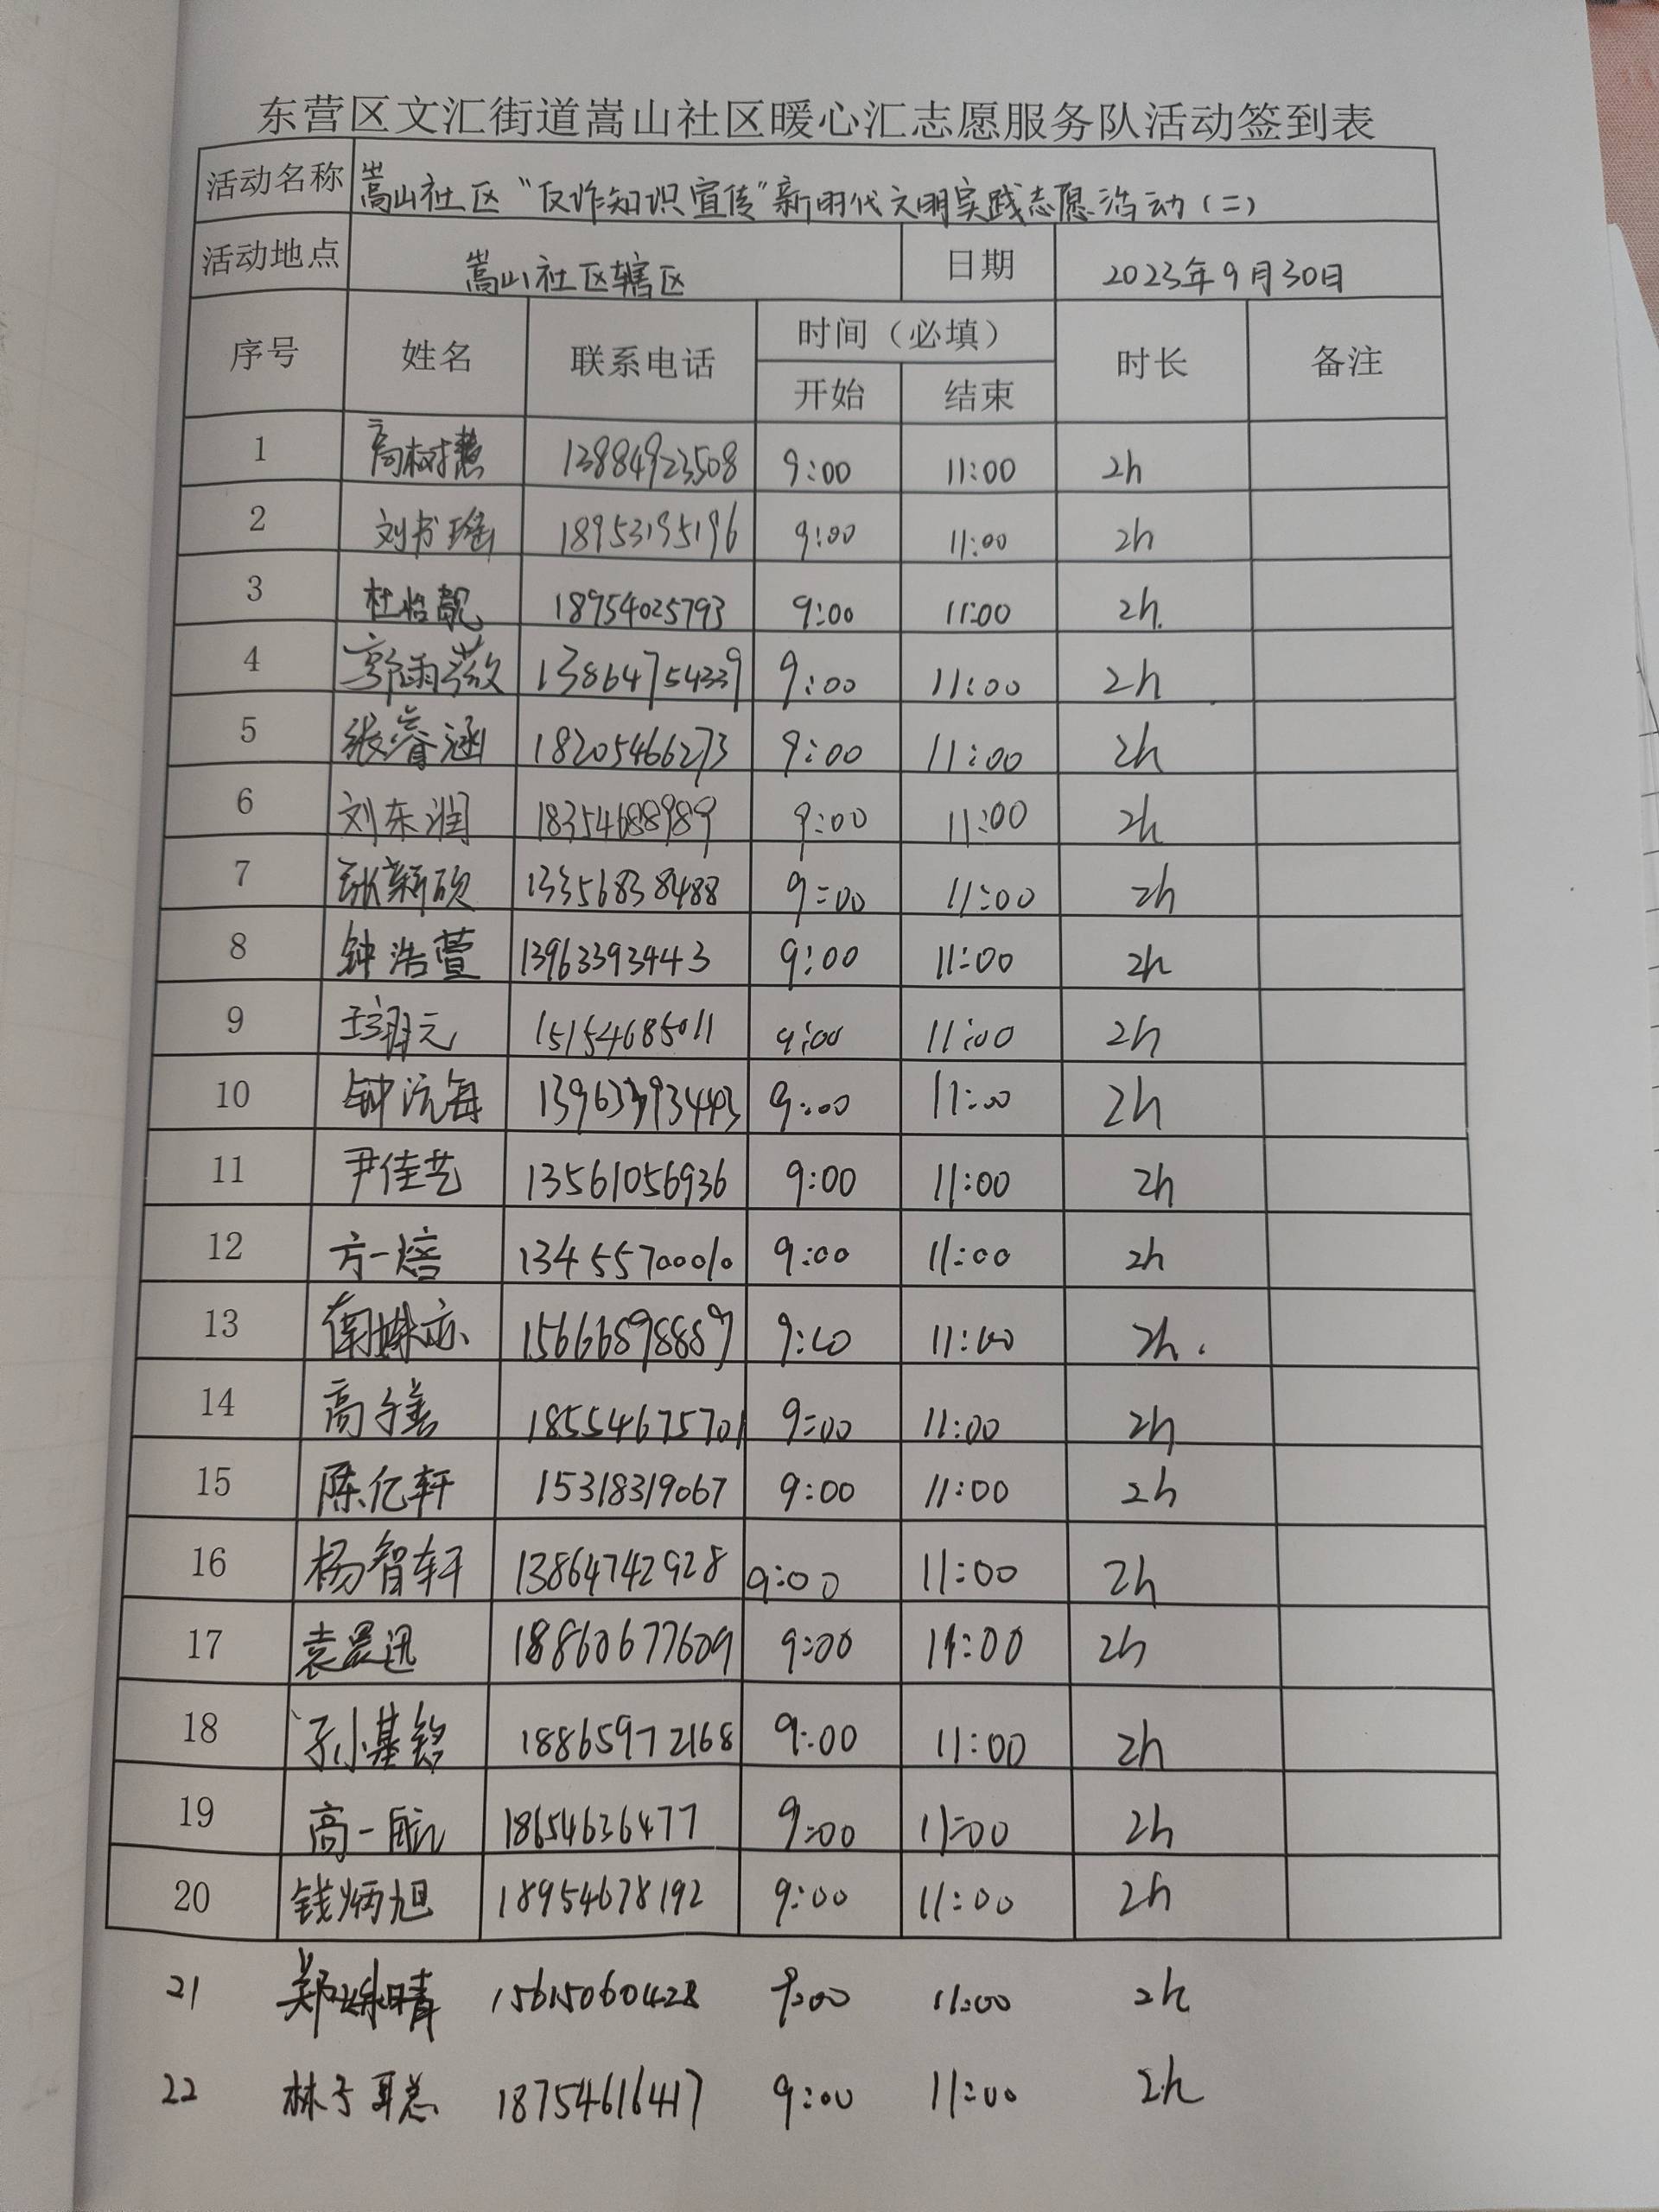 东营区文汇街道嵩山社区暖心汇志愿服务队活动签到表
活动名称 嵩山社区“反诈知识宣传”新时代文明实践志愿活动(二)
活动地点 嵩山社区辖区 日期 2023年9月30日
序号 姓名 联系电话 时间（必填） 时长 备注
开始 结束
1 高树慧 13884923508 9:00 11:00 2h
2 刘书瑶 18953195196 9:00 11:00 2h
3 杜怡靓 18954025793 9:00 11:00 2h.
4 郭雨薇 13864754339 9:00 11:00 2h
5 张睿涵 18205466273 9:00 11:00 2h
6 刘东润 18354688989 9:00 11:00 2h
7 张薪硕 13356838488 9:00 11:00 2h
8 钟浩萱 13963393443 9:00 11:00 2h
9 王翊元 15154685011 9:00 11:00 2h
10 钟沅每 13963393443 9:00 11:00 2h
11 尹佳艺 13561056936 9:00 11:00 2h
12 方一焙 13455700010 9:00 11:00 2h
13 15666898889 9:00 11:00 2h.
14 高子善 18554675701 9:00 11:00 2h
15 陈亿轩 15318319067 9:00 11:00 2h
16 杨智轩 13864742928 9:00 11:00 2h
17 袁晨迅 18860677609 9:00 11:00 2h
18 孙基铭 18865972168 9:00 11:00 2h
19 高一航 18654636477 9:00 11:00 2h
20 钱炳旭 18954678192 9:00 11:00 2h
21 郑姝晴 15615060428 9:00 11:00 2h
22 林子聪 18754616417 9:00 11:00 2h